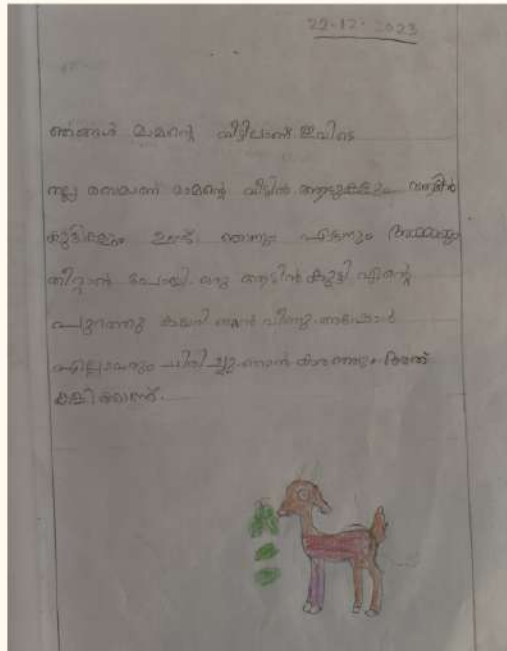 22-12-2023
ഞങ്ങൾ മാമന്റെ വീട്ടിലാണ് ഇവിടെ
നല്ല രസമാണ് മാമന്റെ വീട്ടിൽ ആടുകളും
കുട്ടികളും ഉണ്ട്. ഞാനും ഏട്ടനും
തീറ്റാൻ പോയി. ഒരു ആടിൻ കുട്ടി എന്റെ
പുറത്തു കയറി ഞാൻ വീണു. അപ്പോൾ
എല്ലാവരും ചിരിച്ചു. ഞാൻ